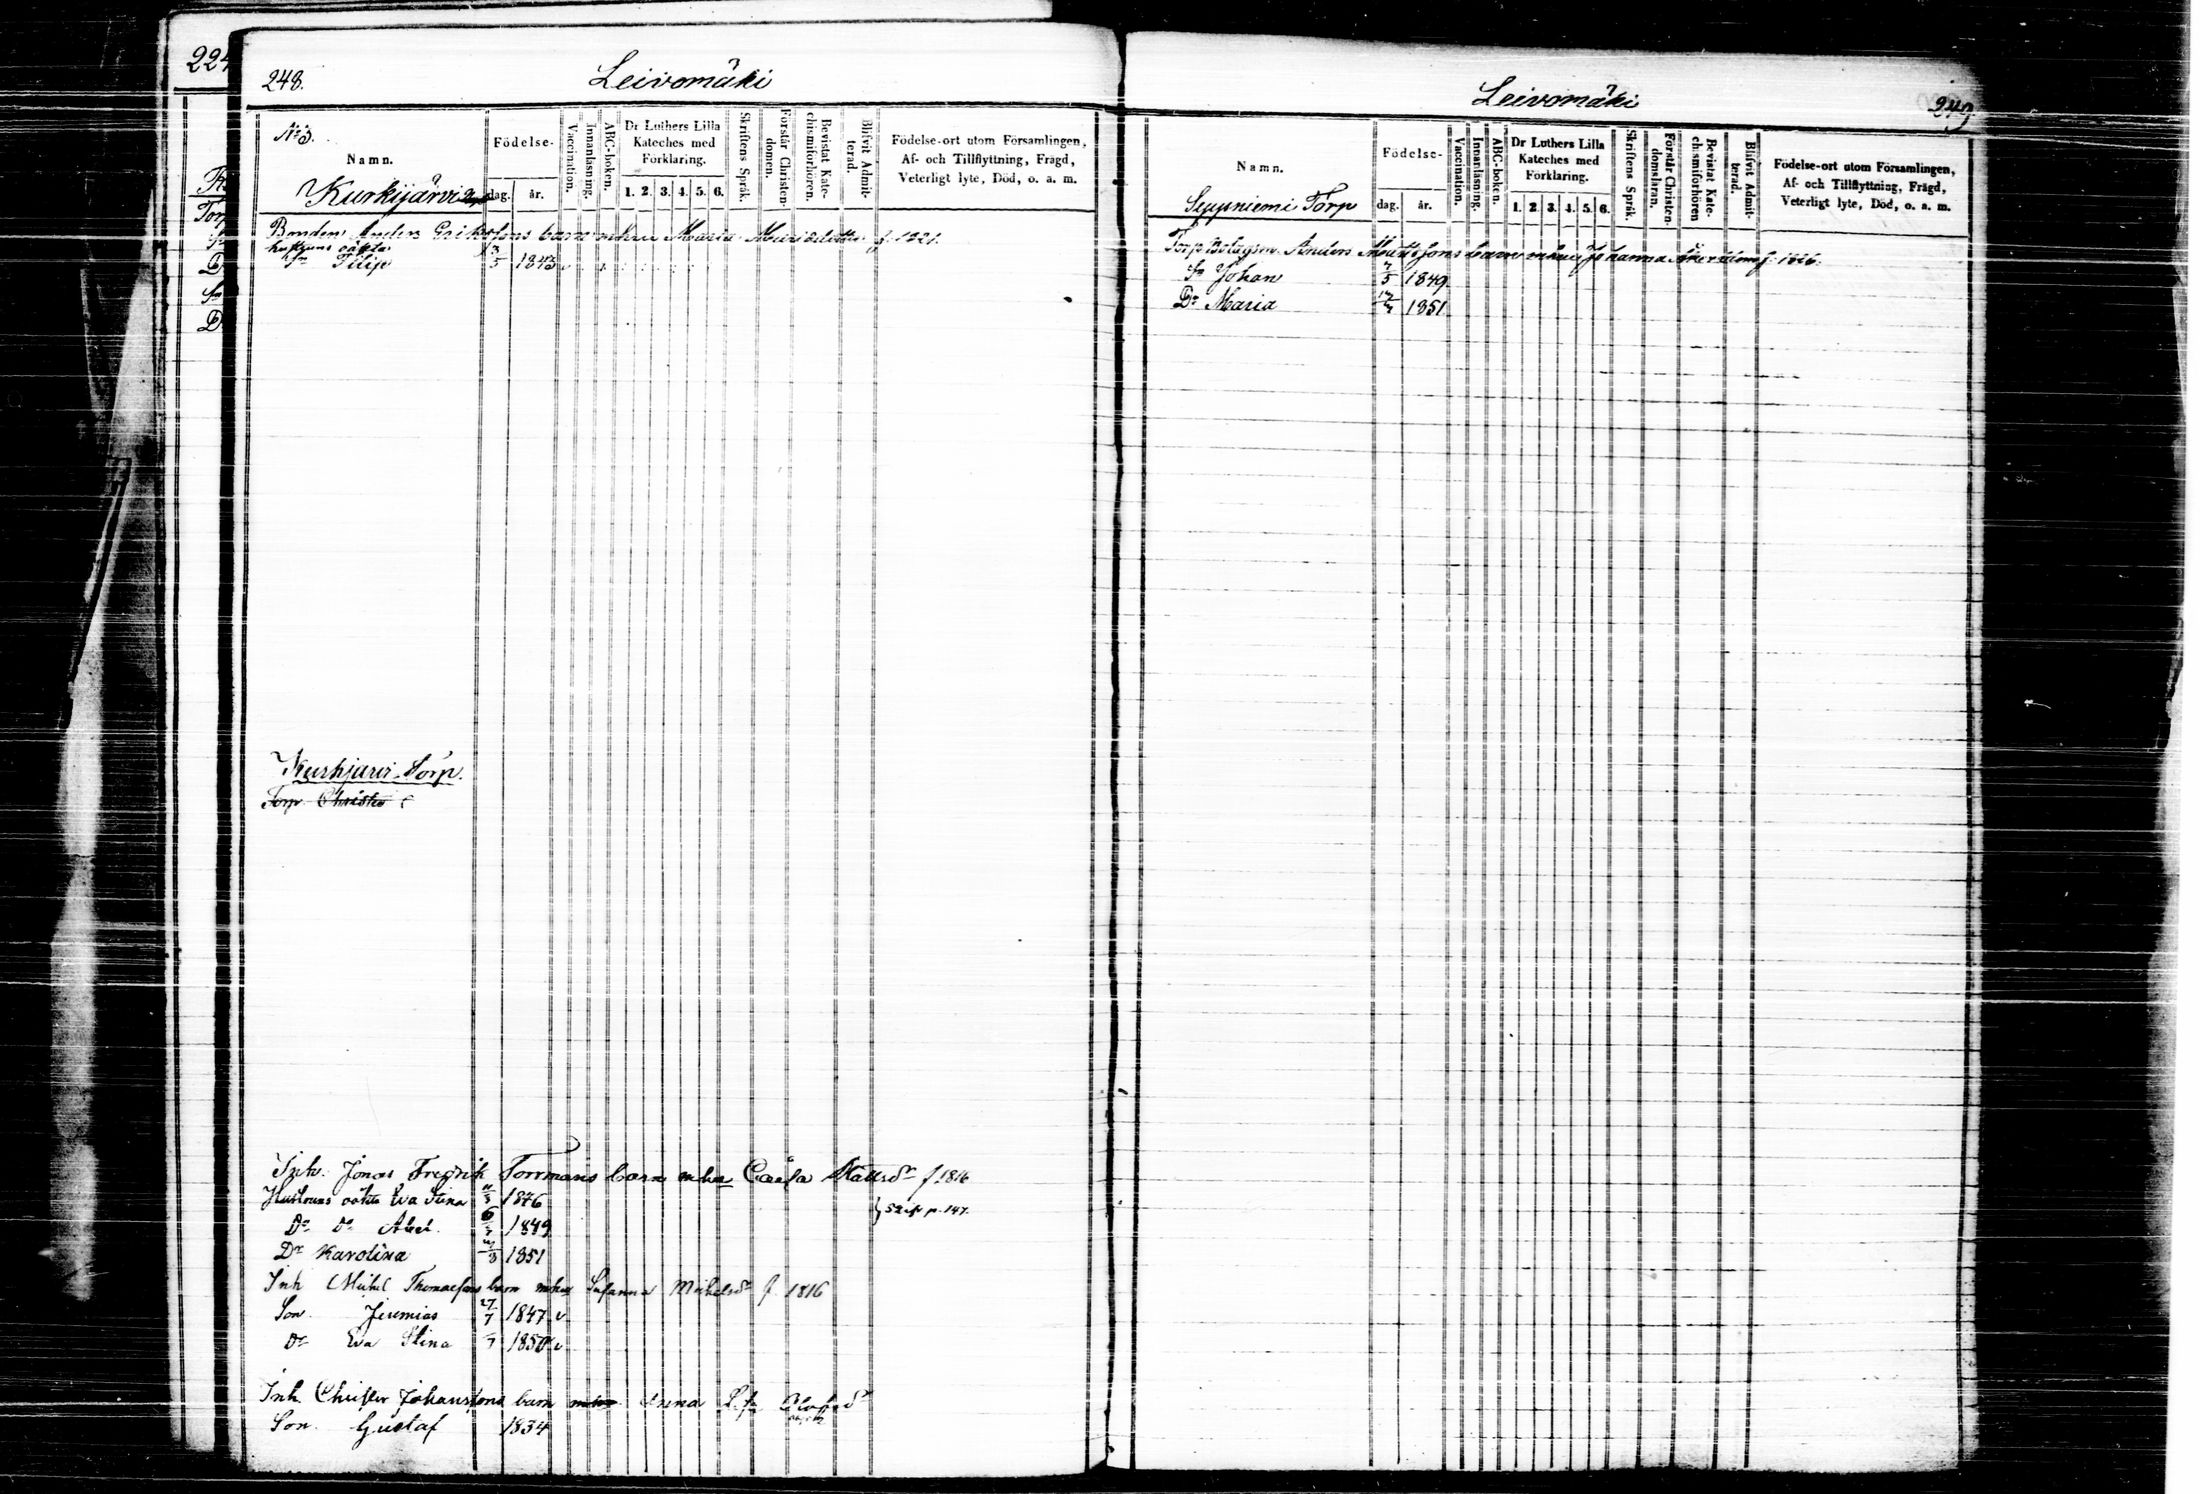 224
248.
Leivomäki
No 3.
Namn.
Födelse-
dag.
år.
Vaccination.
Innanläsning.
ABC-boken.
Dr Luthers Lilla
Kateches med
Förklaring.
1. 2. 3. 4. 5. 6.
Skriftens Språk.
Förstår Christen-
domen.
Bevistat Kate-
chismiförhören.
Blifvit Admit-
terad.
Födelse-ort utom Församlingen,
Af- och Tillflyttning, Frägd,
Veterligt lyte, Död, o. a. m.
Kurkijärvi
Bonden Anders Erikssons barn m hu Maria f. 1821.
hustruns oäkta
Sn Filip 1843
Kurkjärvi Torp.
Torp. Christer
Inh. Jonas Fredrik Forrmans barn mhu Caisa Mattsdr f. 1816
Hustruns oäkta Eva Stina 1846
Dr Do Abel. 6 1849
Dr Karolina 1851
} p. 147.
Inh Michel Thomassons barn mhu Susanna Michelsdr f 1816
Son. Jeremias 27/7 1847 v
Dr Eva Stina 1850 v
Inh. Christer Johanssons barn mhu Anna Lisa
Son. Gustaf 1834
Leivomäki
249.
Namn.
Födelse-
dag.
år.
Vaccination.
Innanläsning.
ABC-boken.
Dr Luthers Lilla
Kateches med
Förklaring.
1. 2. 3. 4. 5. 6.
Skriftens Språk.
Förstår Christen-
domsläran.
Bevistat Kate-
chismiförhören
Blifvit Admit-
terad.
Födelse-ort utom Församlingen,
Af- och Tillflyttning, Frägd,
Veterligt lyte, Död, o. a. m.
Seppniemi Torp
Torp. Bolagsm. Anders Mattssons barn mhu Johanna f. 1826.
Sn Johan 1849
Dr Maria 1851